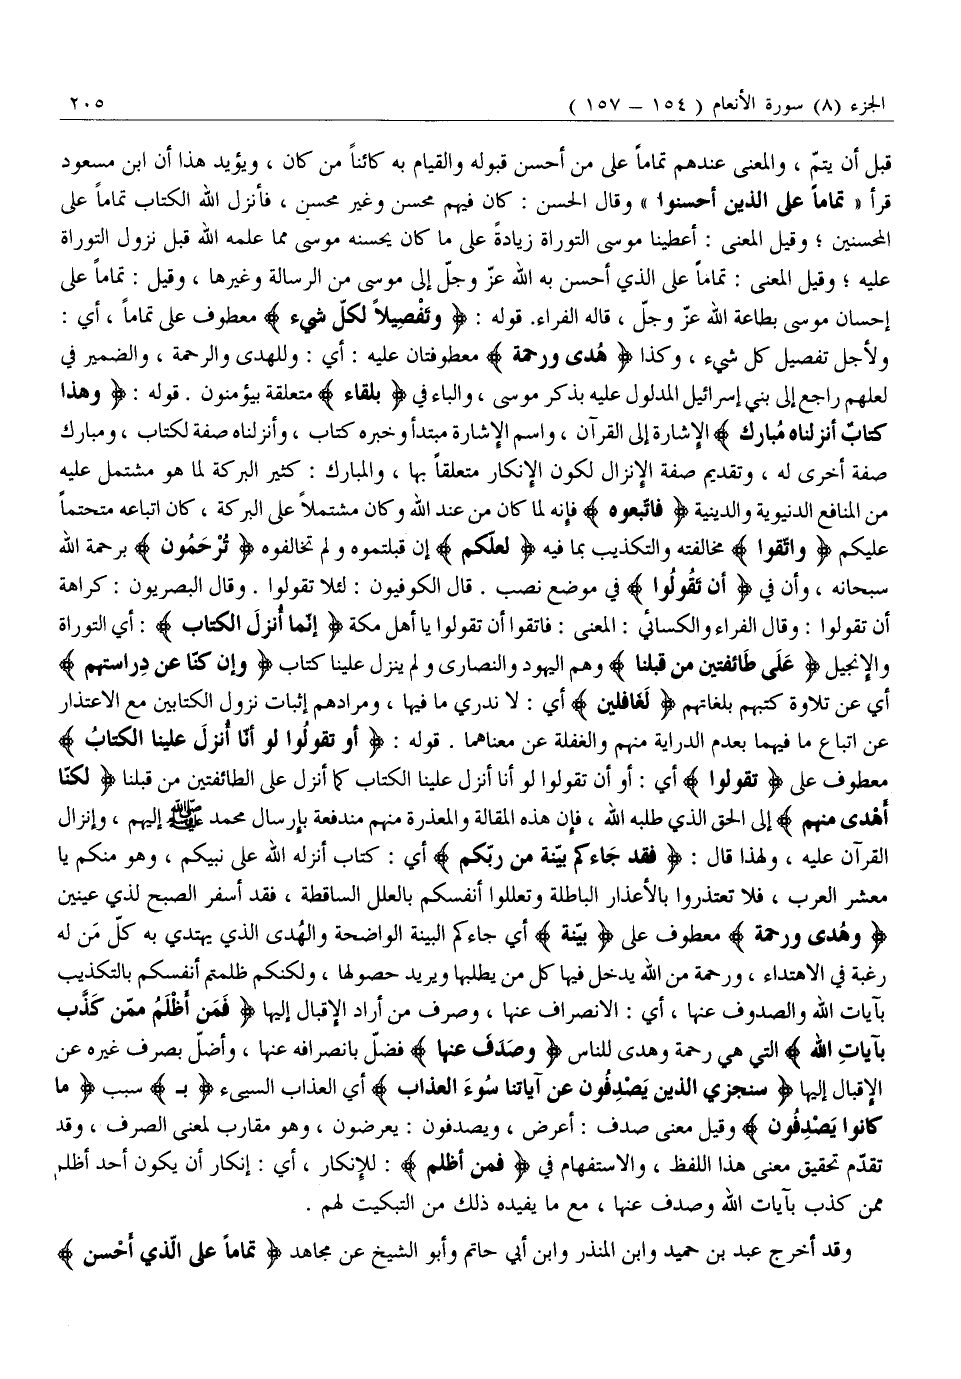 الجزء (٨) سورة الأنعام ( ١٥٤ – ١٥٧ ) ٢٠٥
قبل أن يتمّ ، والمعنى عندهم تماماً على من أحسن قبوله والقيام به كائناً من كان ، ويؤيد هذا أن ابن مسعود
قرأ « تماماً على الذين أحسنوا » وقال الحسن : كان فيهم محسن وغير محسن ، فأنزل الله الكتاب تماماً على
المحسنين ؛ وقيل المعنى : أعطينا موسى التوراة زيادةً على ما كان يحسنه موسى مما علمه الله قبل نزول التوراة
عليه ؛ وقيل المعنى : تماماً على الذي أحسن به الله عزّ وجلّ إلى موسى من الرسالة وغيرها ، وقيل : تماماً على
إحسان موسى بطاعة الله عزّ وجلّ ، قاله الفراء. قوله : ﴿ وتَفْصِيلاً لكلّ شيء ﴾ معطوف على تماماً ، أي :
ولأجل تفصيل كل شيء ، وكذا ﴿ هُدى ورحمة ﴾ معطوفتان عليه : أي : وللهدى والرحمة ، والضمير في
لعلهم راجع إلى بني إسرائيل المدلول عليه بذكر موسى ، والباء في ﴿ بلقاء ﴾ متعلقة بيؤمنون . قوله : ﴿ وهذا
كتابٌ أنزلناه مُبارك ﴾ الإشارة إلى القرآن ، واسم الإشارة مبتدأ وخبره كتاب ، وأنزلناه صفة لكتاب ، ومبارك
صفة أخرى له ، وتقديم صفة الإنزال لكون الإنكار متعلقاً بها ، والمبارك : كثير البركة لما هو مشتمل عليه
من المنافع الدنيوية والدينية ﴿ فاتّبعوه ﴾ فإنه لما كان من عند الله وكان مشتملاً على البركة ، كان اتباعه متحتماً
عليكم ﴿ واتّقوا ﴾ مخالفته والتكذيب بما فيه ﴿ لعلّكم ﴾ إن قبلتموه ولم تخالفوه ﴿ تُرْحَمُون ﴾ برحمة الله
سبحانه ، وأن في ﴿ أن تَقُولُوا ﴾ في موضع نصب . قال الكوفيون : لئلا تقولوا . وقال البصريون : كراهة
أن تقولوا : وقال الفراء والكسائي : المعنى : فاتقوا أن تقولوا يا أهل مكة ﴿ إنّما أُنزلَ الكتاب ﴾ : أي التوراة
والإنجيل ﴿ عَلَى طَائفتين من قبلنا ﴾ وهم اليهود والنصارى ولم ينزل علينا كتاب ﴿ وإن كنّا عن دِراستهم ﴾
أي عن تلاوة كتبهم بلغاتهم ﴿ لَغَافلين ﴾ أي : لا ندري ما فيها ، ومرادهم إثبات نزول الكتابين مع الاعتذار
عن اتباع ما فيهما بعدم الدراية منهم والغفلة عن معناهما . قوله : ﴿ أو تقولُوا لو أنّا أُنزلَ علينا الكتابُ ﴾
معطوف على ﴿ تقولوا ﴾ أي : أو أن تقولوا لو أنا أنزل علينا الكتاب كما أنزل على الطائفتين من قبلنا ﴿ لكنّا
أَهْدى منهم ﴾ إلى الحق الذي طلبه الله ، فإن هذه المقالة والمعذرة منهم مندفعة بإرسال محمد ﷺ إليهم ، وإنزال
القرآن عليه ، ولهذا قال : ﴿ فقد جَاءكم بيّنة من ربّكم ﴾ أي : كتاب أنزله الله على نبيكم ، وهو منكم يا
معشر العرب ، فلا تعتذروا بالأعذار الباطلة وتعللوا أنفسكم بالعلل الساقطة ، فقد أسفر الصبح لذي عينين
﴿ وهُدى ورحمة ﴾ معطوف على ﴿ بيّنة ﴾ أي جاءكم البينة الواضحة والهُدى الذي يهتدي به كلّ مَن له
رغبة في الاهتداء ، ورحمة من الله يدخل فيها كل من يطلبها ويريد حصولها ، ولكنكم ظلمتم أنفسكم بالتكذيب
بآيات الله والصدوف عنها ، أي : الانصراف عنها ، وصرف من أراد الإقبال إليها ﴿ فَمَن أَظْلَمُ ممّن كَذَّب
بآياتِ الله ﴾ التي هي رحمة وهدى للناس ﴿ وصَدَفَ عنها ﴾ فضلّ بانصرافه عنها ، وأضلّ بصرف غيره عن
الإقبال إليها ﴿ سنجزي الذين يَصْدِفُون عن آياتنا سُوءَ العذاب ﴾ أي العذاب السيىء ﴿ بـ ﴾ سبب ﴿ ما
كانوا يَصْدِفُون ﴾ وقيل معنى صدف : أعرض ، ويصدفون : يعرضون ، وهو مقارب لمعنى الصرف ، وقد
تقدّم تحقيق معنى هذا اللفظ ، والاستفهام في ﴿ فمن أظلم ﴾ : للإنكار ، أي : إنكار أن يكون أحد أظلم
ممن كذب بآيات الله وصدف عنها ، مع ما يفيده ذلك من التبكيت لهم .
وقد أخرج عبد بن حميد وابن المنذر وابن أبي حاتم وأبو الشيخ عن مجاهد ﴿ تماماً على الّذي أَحْسن ﴾